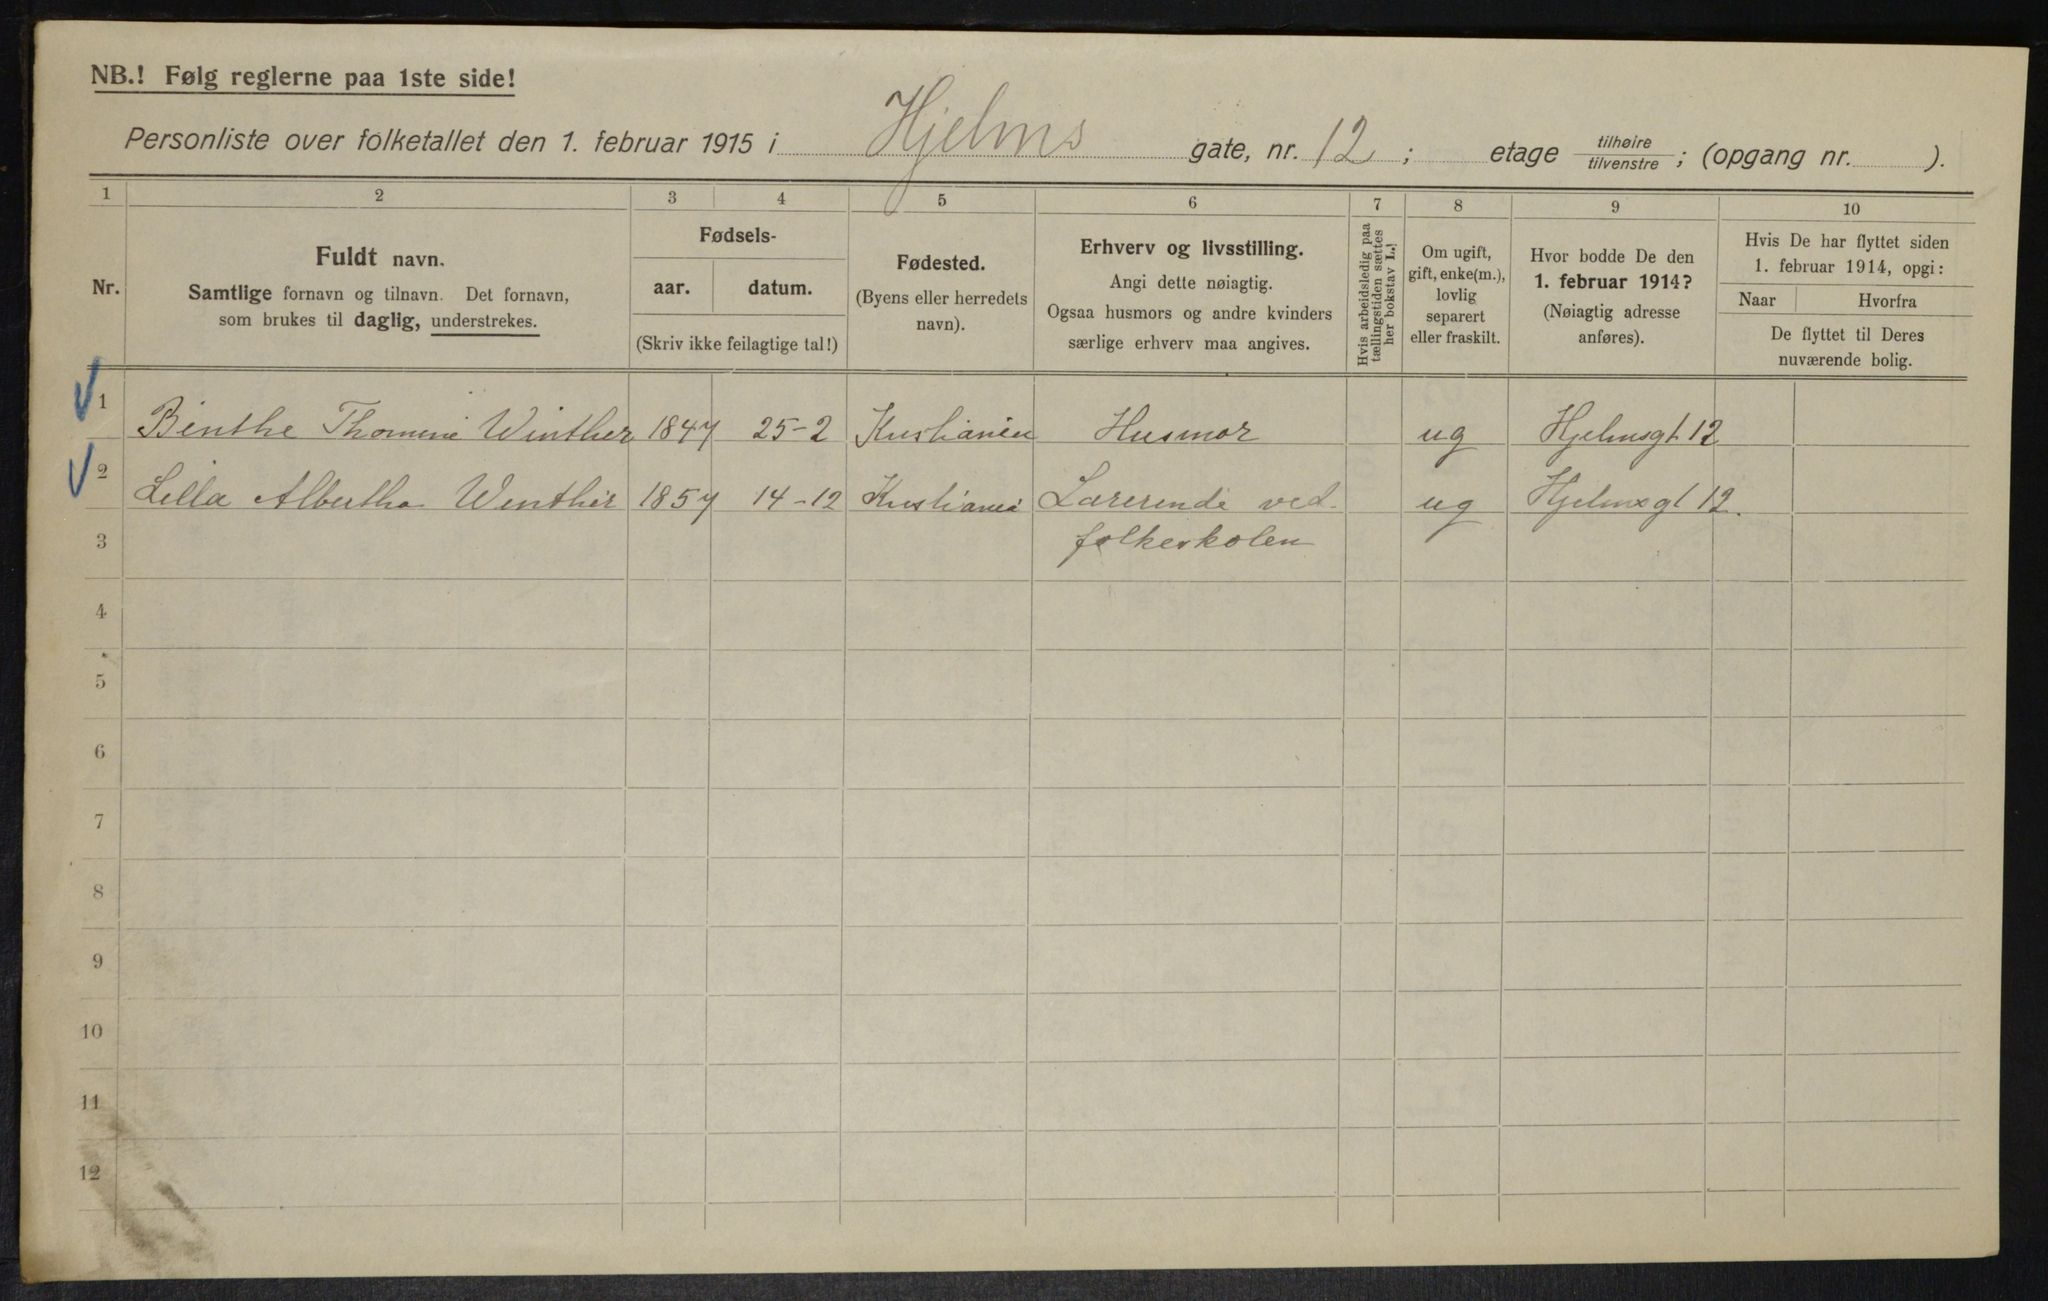 NB.! Følg reglerne paa 1ste side!
Personliste over folketallet den 1. februar 1915 i Hjelms gate, nr. 12 ; etage tilhøire / tilvenstre ; (opgang nr. ).
1 2 3 4 5 6 7 8 9 10
Nr.
Fuldt navn.
Samtlige fornavn og tilnavn. Det fornavn,
som brukes til daglig, understrekes.
Fødsels-
aar. datum.
(Skriv ikke feilagtige tal!)
Fødested.
(Byens eller herredets
navn).
Erhverv og livsstilling.
Angi dette nøiagtig.
Ogsaa husmors og andre kvinders
særlige erhverv maa angives.
Hvis arbeidsledig paa
tællingstiden sættes
her bokstav L.!
Om ugift,
gift, enke(m.),
lovlig
separert
eller fraskilt.
Hvor bodde De den
1. februar 1914?
(Nøiagtig adresse
anføres).
Hvis De har flyttet siden
1. februar 1914, opgi:
Naar Hvorfra
De flyttet til Deres
nuværende bolig.
1 Binthe Thomine Winther 1847 25-2 Kristiania Husmor ug Hjelmsgt 12
2 Lilla Albertha Winther 1857 14-12 Kristiania Lærerinde ved ug Hjelmsgt 12.
3 folkeskolen
4
5
6
7
8
9
10
11
12